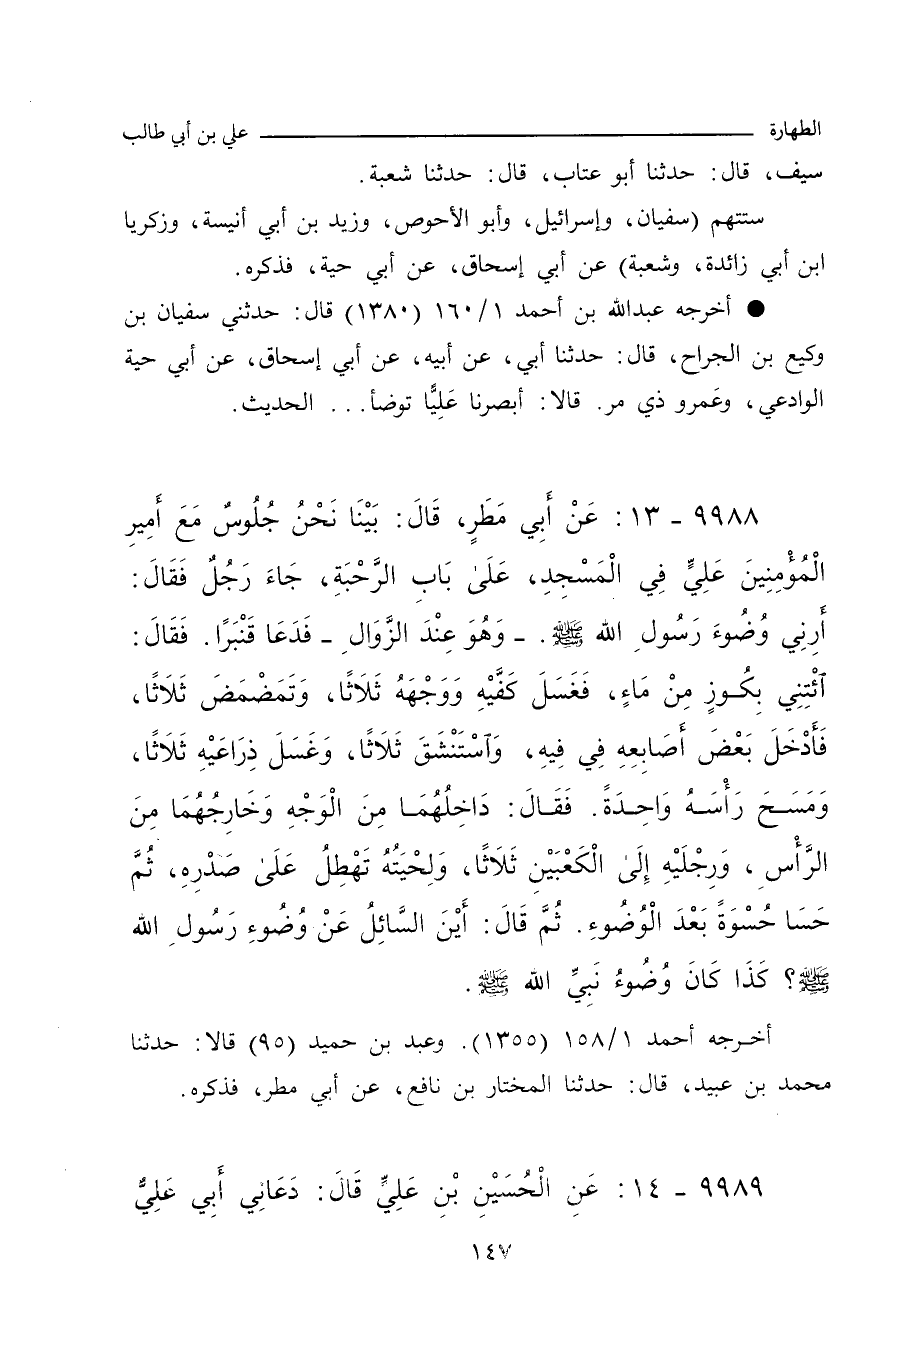 الطهارة ــــــــــ علي بن أبي طالب
سيف، قال: حدثنا أبو عتاب، قال: حدثنا شعبة.
ستتهم (سفيان، وإسرائيل، وأبو الأحوص، وزيد بن أبي أنيسة، وزكريا
ابن أبي زائدة، وشعبة) عن أبي إسحاق، عن أبي حية، فذكره.
● أخرجه عبدالله بن أحمد ١/ ١٦٠ (١٣٨٠) قال: حدثني سفيان بن
وكيع بن الجراح، قال: حدثنا أبي، عن أبيه، عن أبي إسحاق، عن أبي حية
الوادعي، وعَمرو ذي مر. قالا: أبصرنا عَليًّا توضأ... الحديث.
٩٩٨٨ - ١٣: عَنْ أَبِي مَطَرٍ، قَالَ: بَيْنَا نَحْنُ جُلُوسٌ مَعَ أَمِيرِ
الْمُؤْمِنِينَ عَلِيٍّ فِي الْمَسْجِدِ، عَلَىٰ بَابِ الرَّحْبَةِ، جَاءَ رَجُلٌ فَقَالَ:
أَرِنِي وُضُوءَ رَسُولِ الله ﷺ. - وَهُوَ عِنْدَ الزَّوَالِ - فَدَعَا قَنْبَرًا. فَقَالَ:
ٱئْتِنِي بِكُوزٍ مِنْ مَاءٍ، فَغَسَلَ كَفَّيْهِ وَوَجْهَهُ ثَلَاثًا، وَتَمَضْمَضَ ثَلَاثًا،
فَأَدْخَلَ بَعْضَ أَصَابِعِهِ فِي فِيهِ، وَٱسْتَنْشَقَ ثَلَاثًا، وَغَسَلَ ذِرَاعَيْهِ ثَلَاثًا،
وَمَسَحَ رَأْسَهُ وَاحِدَةً. فَقَالَ: دَاخِلُهُمَا مِنَ الْوَجْهِ وَخَارِجُهُمَا مِنَ
الرَّأْسِ، وَرِجْلَيْهِ إِلَىٰ الْكَعْبَيْنِ ثَلَاثًا، وَلِحْيَتُهُ تَهْطِلُ عَلَىٰ صَدْرِهِ، ثُمَّ
حَسَا حُسْوَةً بَعْدَ الْوُضُوءِ. ثُمَّ قَالَ: أَيْنَ السَّائِلُ عَنْ وُضُوءِ رَسُولِ الله
ﷺ؟ كَذَا كَانَ وُضُوءُ نَبِيِّ الله ﷺ.
أخرجه أحمد ١/ ١٥٨ (١٣٥٥). وعبد بن حميد (٩٥) قالا: حدثنا
محمد بن عبيد، قال: حدثنا المختار بن نافع، عن أبي مطر، فذكره.
٩٩٨٩ - ١٤: عَنِ الْحُسَيْنِ بْنِ عَلِيٍّ قَالَ: دَعَانِي أَبِي عَلِيٌّ
١٤٧